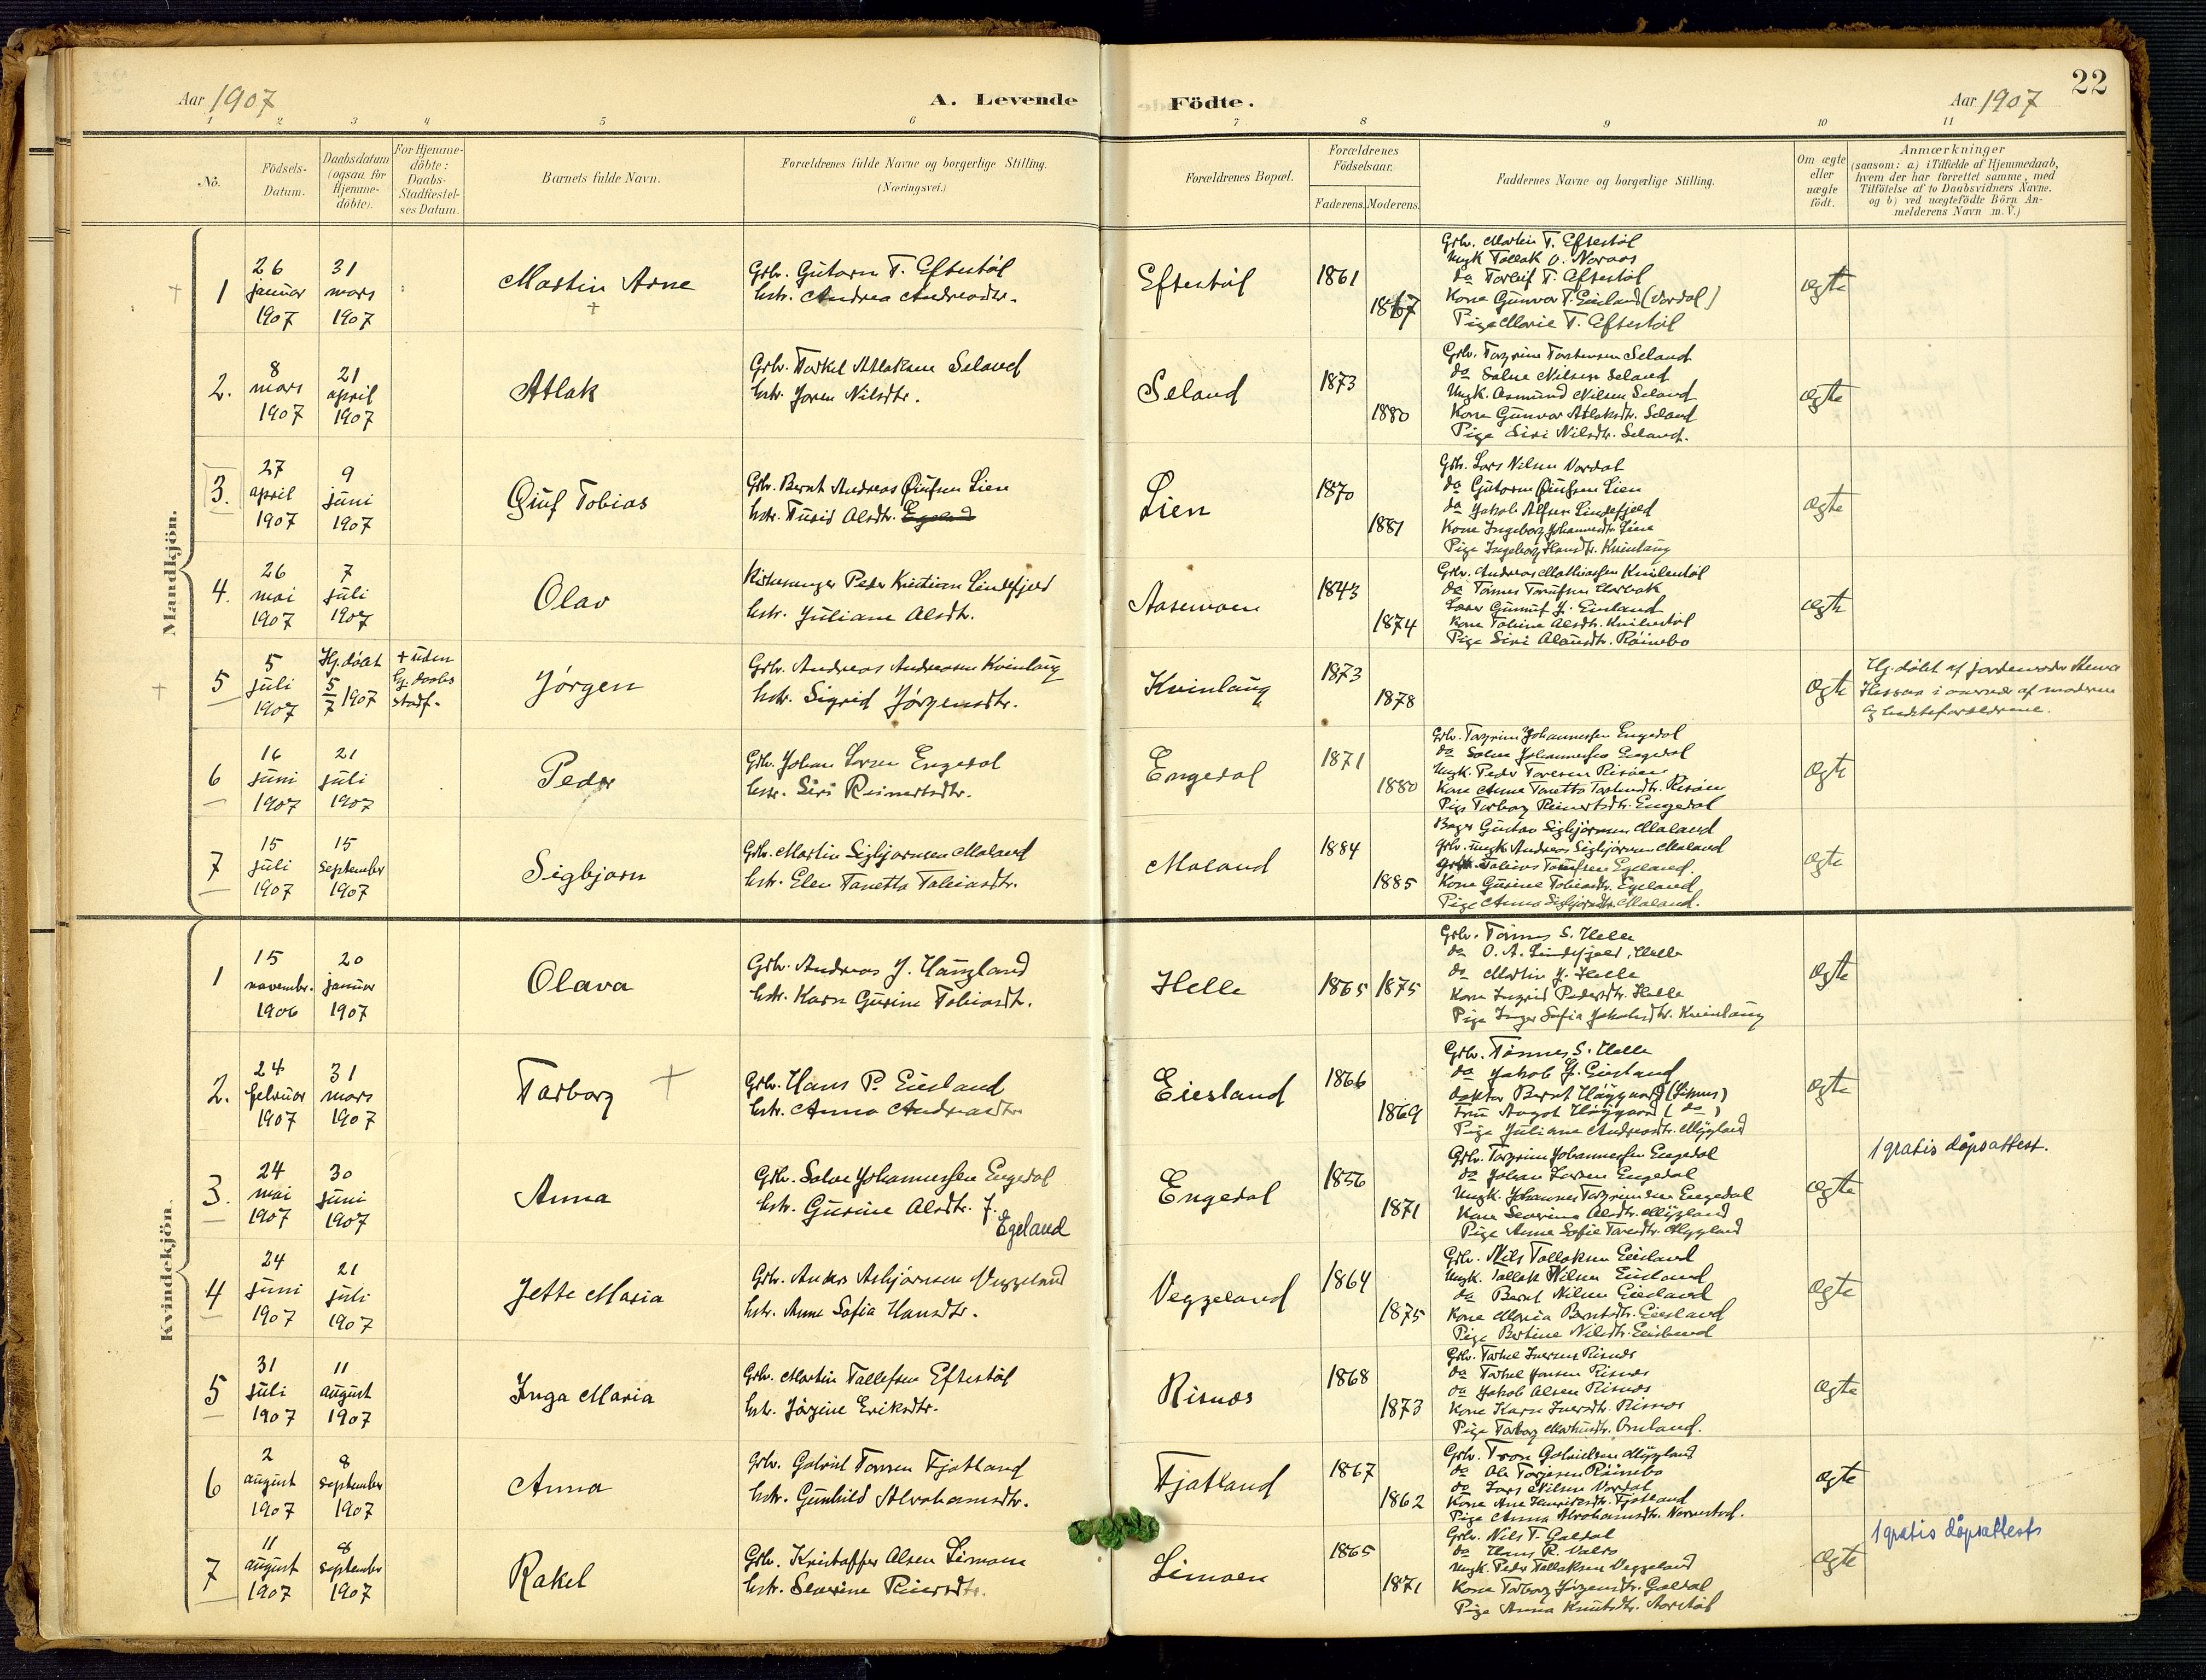 22
Aar 1907
A. Levende Födte.
Aar 1907
1 2 3 4 5 6 7 8 9 10 11
No.
Födsels-Datum.
Daabsdatum (ogsaa for Hjemme-döbte).
For Hjemme-döbte: Daabs-Stadfæstel-ses Datum.
Barnets fulde Navn.
Forældrenes fulde Navne og borgerlige Stilling.
(Næringsvei.)
Forældrenes Bopæl.
Forældrenes Födselsaar.
Faderens. Moderens.
Faddernes Navne og borgerlige Stilling.
Om ægte eller uægte födt.
Anmærkninger
(saasom: a) i Tilfælde af Hjemmedaab,
hvem der har forrettet samme, med
Tilföielse af to Daabsvidners Navne.
og b) ved uægtefödte Börn An-
melderens Navn m. V.)
Mandkjön.
1
26 januar 1907
31 mars 1907
Martin Arne
Grbr. Gutorm T. Eftestøl
hstr. Andrea Andreasdtr.
Eftestøl
1861
1867
Grbr. Martin T. Eftestøl
Ungk Tallak O. Noraas
do Torleif T. Eftestøl
Kone Gunvor T. Eiesland (Vordal)
Pige Marie T. Eftestøl
ægte
2.
8 mars 1907
21 april 1907
Atlak
Grbr. Torkel Atlaksen Seland
hstr. Joren Nilsdtr.
Seland
1873
1880
Grbr. Torgrim Torstensen Seland
do Salve Nilsen Seland
Ungk. Asmund Nilsen Seland
Kone Gunvor Atlaksdtr. Seland
Pige Siri Nilsdtr. Seland.
ægte
3.
27 april 1907
9 juni 1907
Øiuf Tobias
Grbr. Bernt Andreas Øiufsen Lien
hstr. Turid Alsdtr. Egeland
Lien
1870
1881
Grbr. Lars Nilsen Vordal
do Gutorm Øiufsen Lien
do Jakob Alfsen Lindefjeld
Kone Ingeborg Johannesdtr. Lien
Pige Ingeborg Hansdtr. Kvinlaug
ægte
4.
26 mai 1907
7 juli 1907
Olav
Kirkesanger Peder Kristian Lindefjeld
hstr. Juliane Alsdtr.
Aasemoen
1843
1874
Grbr. Andreas Mathiassen Kvilestøl
do Tønnes
Kone Tobine Alsdtr. Kvilestøl
Pige Siri Alausdtr. Røinebo
ægte
5
5 juli 1907
Hj. døbt 5/7 1907
+ uden hj. daabs stadf.
Jørgen
Grbr. Andreas Andreasen Kvinlaug
hstr. Sigrid Jørgensdtr.
Kvinlaug
1873
1878
ægte
Hj. døbt af jordemoder
i nærvær af moderen
og bedsteforældrene.
6
16 juni 1907
21 juli 1907
Peder
Grbr. Johan Larsen Engedal
hstr. Siri Reinertsdtr.
Engedal
1871
1880
Grbr. Torgrim Johannessen Engedal
do Salve Johannessen Engedal
Ungk. Peder Taresen Risøen
Kone Anne Tonette Torkendtr. Risøen
Pige Torborg Reinertsdtr. Engedal
ægte
7
15 juli 1907
15 september 1907
Sigbjørn
Grbr. Martin Sigbjørnsen Moland
hstr. Elen Tonette Tobiasdtr.
Moland
1884
1885
Bager Gustav Sigbjørnsen Moland
Grbr. ungk Andreas Sigbjørnsen Moland
Tobias Egeland.
Kone Gusine Tobiasdtr. Egeland
Pige Anna Sigbjørndtr. Moland.
ægte
Kvindekjön.
1
15 novembr. 1906
20 januar 1907
Olava
Grbr. Andreas J. Haugland
hstr. Karn Gusine Tobiasdtr.
Helle
1865
1875
Grbr. Tønnes S. Helle
do O. A. Lindefjeld, Helle
do Martin J. Helle
Kone Ingrid Pedersdtr. Helle
Pige Inger Sofia Jakobsdtr. Kvinlaug
ægte
2.
24 februar 1907
31 mars 1907
Torborg
Grbr. Hans P. Eiesland
hstr. Anna Andreasdtr
Eiesland
1866
1869
Grbr. Tønnes S. Helle
do Jakob J. Eiesland
doktor Bernt Høygaard (Liknes)
Fru Aagot Høygaard (do)
Pige Juliane Andreasdtr. Mygland
ægte
3.
24 mai 1907
30 juni 1907
Anna
Grbr. Salve Johannessen Engedal
hstr. Gusine Alsdtr. f. Egeland
Engedal
1856
1871
Grbr. Torgrim Johannessen Engedal
do Johan Larsen Engedal
Ungk. Johannes Torgrimsen Engedal
Kone Severine Alsdtr. Mygland
Pige Anna Sofie Taredtr. Mygland
ægte
1 gratis dåpsattest.
4
24 juni 1907
21 juli 1907
Jette Maria
Grbr. Anders Asbjørnsen Veggeland
hstr. Anne Sofia Hansdtr.
Veggeland
1864
1875
Grbr. Nils Tallaksen Eiesland
Ungk. Tallak Nilsen Eiesland
do Bernt Nilsen Eiesland
Kone Maria Berntsdtr. Eiesland
Pige Bertine Nilsdtr. Eiesland
ægte
5
31 juli 1907
11 august 1907
Inga Maria
Grbr. Martin Tallefsen Eftestøl
hstr. Jørgine Eriksdtr.
Risnæs
1868
1873
Grbr. Torkel Iversen Risnæs
do Torkel Jonsen Risnæs
do Jakob Alsen Risnæs
Kone Karn Iversdtr. Risnæs
Pige Torborg Omland.
ægte
6
2 august 1907
8 september 1907
Anna
Grbr. Gabriel Tonsen Fjotland
hstr. Gunhild Abrahamsdtr.
Fjotland
1867
1862
Grbr. Tron Gabrielsen Mygland
do Ole Torjesen Røinebo
do Lars Nilsen Vordal
Kone Ane Henriksdtr. Fjotland
Pige Anna Abrahamsdtr.
ægte
7
11 august 1907
8 september 1907
Rakel
Grbr. Kristoffer Alsen Limoen
hstr. Severine Reiersdtr.
Limoen
1865
1871
Grbr. Nils T. Galdal
do Hans R.
Ungk. Peder Tallaksen Veggeland
Kone Torborg Jørgensdtr. Galdal
Pige Anna Knutsdtr. Aarstøl
ægte
1 gratis dåpsattest